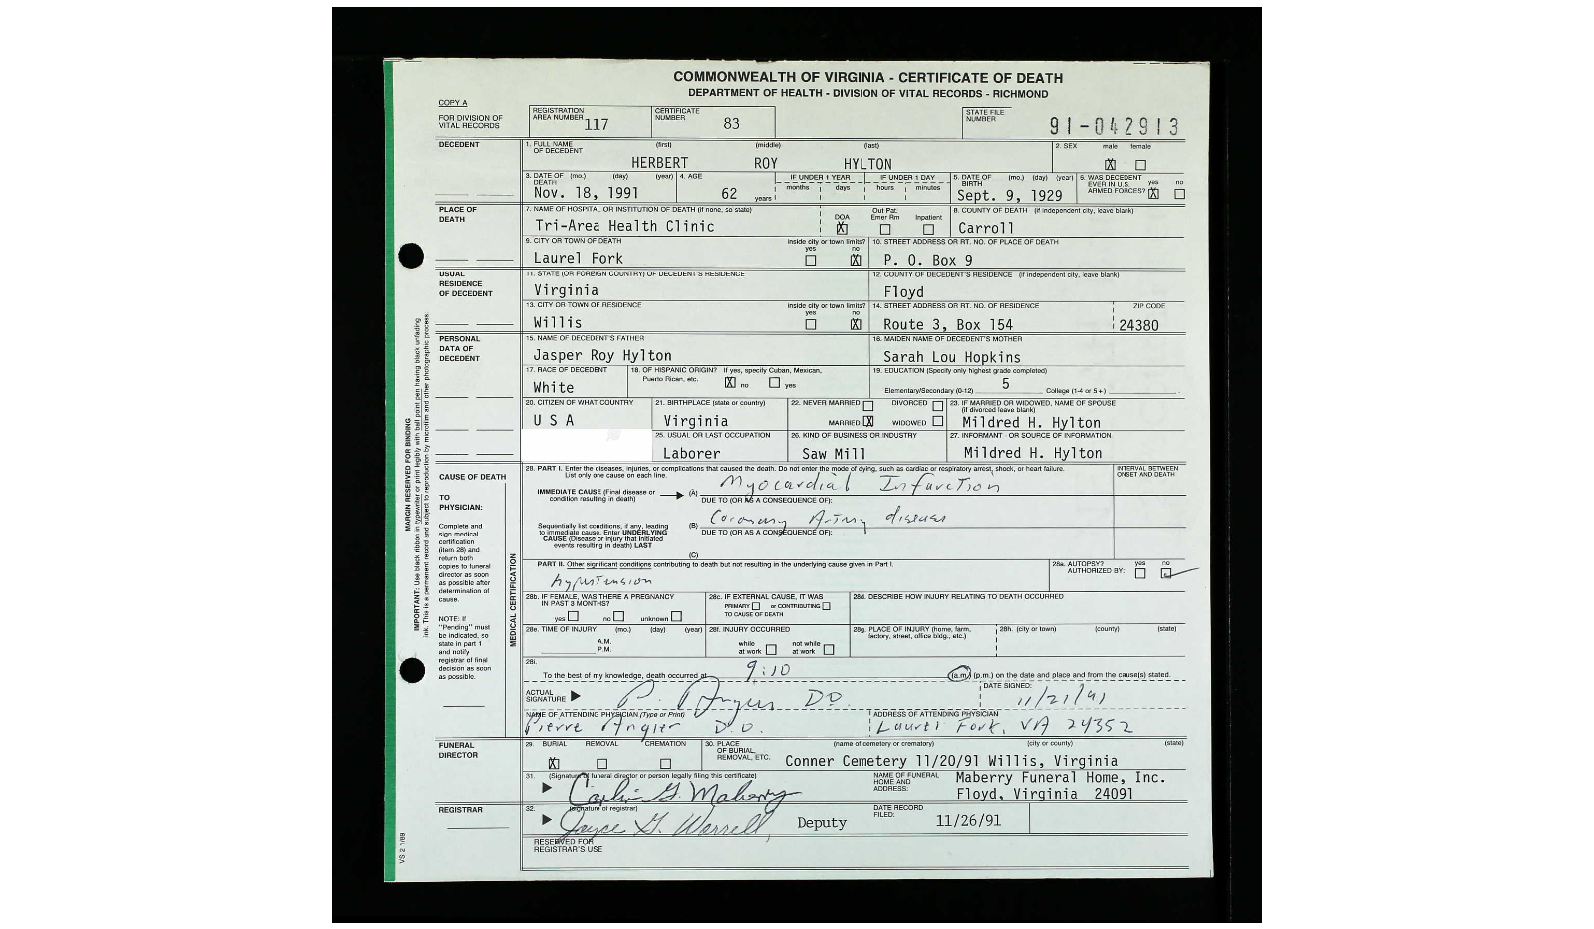 COMMONWEALTH OF VIRGINIA - CERTIFICATE OF DEATH
DEPARTMENT OF HEALTH - DIVISION OF VITAL RECORDS - RICHMOND
COPY A
FOR DIVISION OF VITAL RECORDS
REGISTRATION AREA NUMBER 117
CERTIFICATE NUMBER 83
STATE FILE NUMBER 91-042913
DECEDENT
1. FULL NAME OF DECEDENT (first) (middle) (last)
HERBERT ROY HYLTON
2. SEX male female
X
3. DATE OF DEATH (mo.) (day) (year)
Nov. 18, 1991
4. AGE
62 years
IF UNDER 1 YEAR months days
IF UNDER 1 DAY hours minutes
5. DATE OF BIRTH (mo.) (day) (year)
Sept. 9, 1929
6. WAS DECEDENT EVER IN U.S. ARMED FORCES? yes no
X
PLACE OF DEATH
7. NAME OF HOSPITAL OR INSTITUTION OF DEATH (if none, so state)
Tri-Area Health Clinic
DOA X
Out Pat. Emer Rm
Inpatient
8. COUNTY OF DEATH (if independent city, leave blank)
Carroll
9. CITY OR TOWN OF DEATH
Laurel Fork
inside city or town limits? yes no
X
10. STREET ADDRESS OR RT. NO. OF PLACE OF DEATH
P. O. Box 9
USUAL RESIDENCE OF DECEDENT
11. STATE (OR FOREIGN COUNTRY) OF DECEDENT'S RESIDENCE
Virginia
12. COUNTY OF DECEDENT'S RESIDENCE (if independent city, leave blank)
Floyd
13. CITY OR TOWN OF RESIDENCE
Willis
inside city or town limits? yes no
X
14. STREET ADDRESS OR RT. NO. OF RESIDENCE
Route 3, Box 154
ZIP CODE
24380
PERSONAL DATA OF DECEDENT
15. NAME OF DECEDENT'S FATHER
Jasper Roy Hylton
16. MAIDEN NAME OF DECEDENT'S MOTHER
Sarah Lou Hopkins
17. RACE OF DECEDENT
White
18. OF HISPANIC ORIGIN? If yes, specify Cuban, Mexican, Puerto Rican, etc.
X no yes
19. EDUCATION (Specify only highest grade completed)
Elementary/Secondary (0-12) 5 College (1-4 or 5+)
20. CITIZEN OF WHAT COUNTRY
U S A
21. BIRTHPLACE (state or country)
Virginia
22. NEVER MARRIED DIVORCED
MARRIED X WIDOWED
23. IF MARRIED OR WIDOWED, NAME OF SPOUSE (if divorced leave blank)
Mildred H. Hylton
25. USUAL OR LAST OCCUPATION
Laborer
26. KIND OF BUSINESS OR INDUSTRY
Saw Mill
27. INFORMANT - OR SOURCE OF INFORMATION
Mildred H. Hylton
CAUSE OF DEATH
TO PHYSICIAN:
Complete and sign medical certification (item 28) and return both copies to funeral director as soon as possible after determination of cause.
NOTE: If "Pending" must be indicated, so state in part 1 and notify registrar of final decision as soon as possible.
MEDICAL CERTIFICATION
28. PART I. Enter the diseases, injuries, or complications that caused the death. Do not enter the mode of dying, such as cardiac or respiratory arrest, shock, or heart failure.
List only one cause on each line.
INTERVAL BETWEEN ONSET AND DEATH
IMMEDIATE CAUSE (Final disease or condition resulting in death)
(A) Myocardial Infarction
DUE TO (OR AS A CONSEQUENCE OF):
Sequentially list conditions, if any, leading to immediate cause. Enter UNDERLYING CAUSE (Disease or injury that initiated events resulting in death) LAST
(B) Coronary Artery disease
DUE TO (OR AS A CONSEQUENCE OF):
(C)
PART II. Other significant conditions contributing to death but not resulting in the underlying cause given in Part I.
hypertension
28a. AUTOPSY? yes no
AUTHORIZED BY:
28b. IF FEMALE, WAS THERE A PREGNANCY IN PAST 3 MONTHS?
yes no unknown
28c. IF EXTERNAL CAUSE, IT WAS
PRIMARY or CONTRIBUTING
TO CAUSE OF DEATH
28d. DESCRIBE HOW INJURY RELATING TO DEATH OCCURRED
28e. TIME OF INJURY (mo.) (day) (year)
A.M.
P.M.
28f. INJURY OCCURRED
while at work not while at work
28g. PLACE OF INJURY (home, farm, factory, street, office bldg., etc.)
28h. (city or town) (county) (state)
28i.
To the best of my knowledge, death occurred at 9:10 (a.m.) (p.m.) on the date and place and from the cause(s) stated.
ACTUAL SIGNATURE P. Angier DO.
DATE SIGNED: 11/21/91
NAME OF ATTENDING PHYSICIAN (Type or Print)
Pierre Angier D.O.
ADDRESS OF ATTENDING PHYSICIAN
Laurel Fork, VA 24352
FUNERAL DIRECTOR
29. BURIAL REMOVAL CREMATION
X
30. PLACE OF BURIAL, REMOVAL, ETC. (name of cemetery or crematory) (city or county) (state)
Conner Cemetery 11/20/91 Willis, Virginia
31. (Signature of funeral director or person legally filing this certificate)
G. Maberry
NAME OF FUNERAL HOME AND ADDRESS:
Maberry Funeral Home, Inc.
Floyd, Virginia 24091
REGISTRAR
32. (signature of registrar)
Joyce G. Worrell, Deputy
DATE RECORD FILED: 11/26/91
RESERVED FOR REGISTRAR'S USE
MARGIN RESERVED FOR BINDING
IMPORTANT: Use black ribbon in typewriter or print legibly with ball point pen having black unfading
ink. This is a permanent record and subject to reproduction by microfilm and other photographic process.
VS 2 1/89